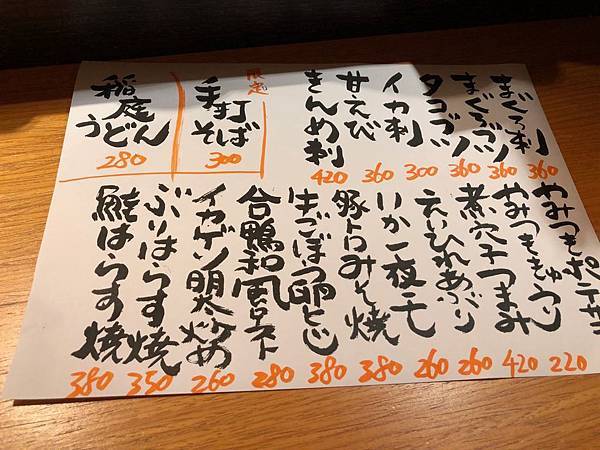 まぐろ刺
360
まぐろブツ
360
タコブツ
360
イカ刺
300
甘えび
360
きんめ刺
420
限定
手打
そば
300
稲庭
うどん
280
やみつきポテサ
やみつききゅうり
220
煮穴子つまみ
420
えいひれあぶり
260
いか一夜干
260
豚トロみそ焼
380
生ごぼう卵とじ
380
合鴨和風ロースト
280
イカゲソ明太炒め
260
ぶりはらす焼
350
鮭はらす焼
380